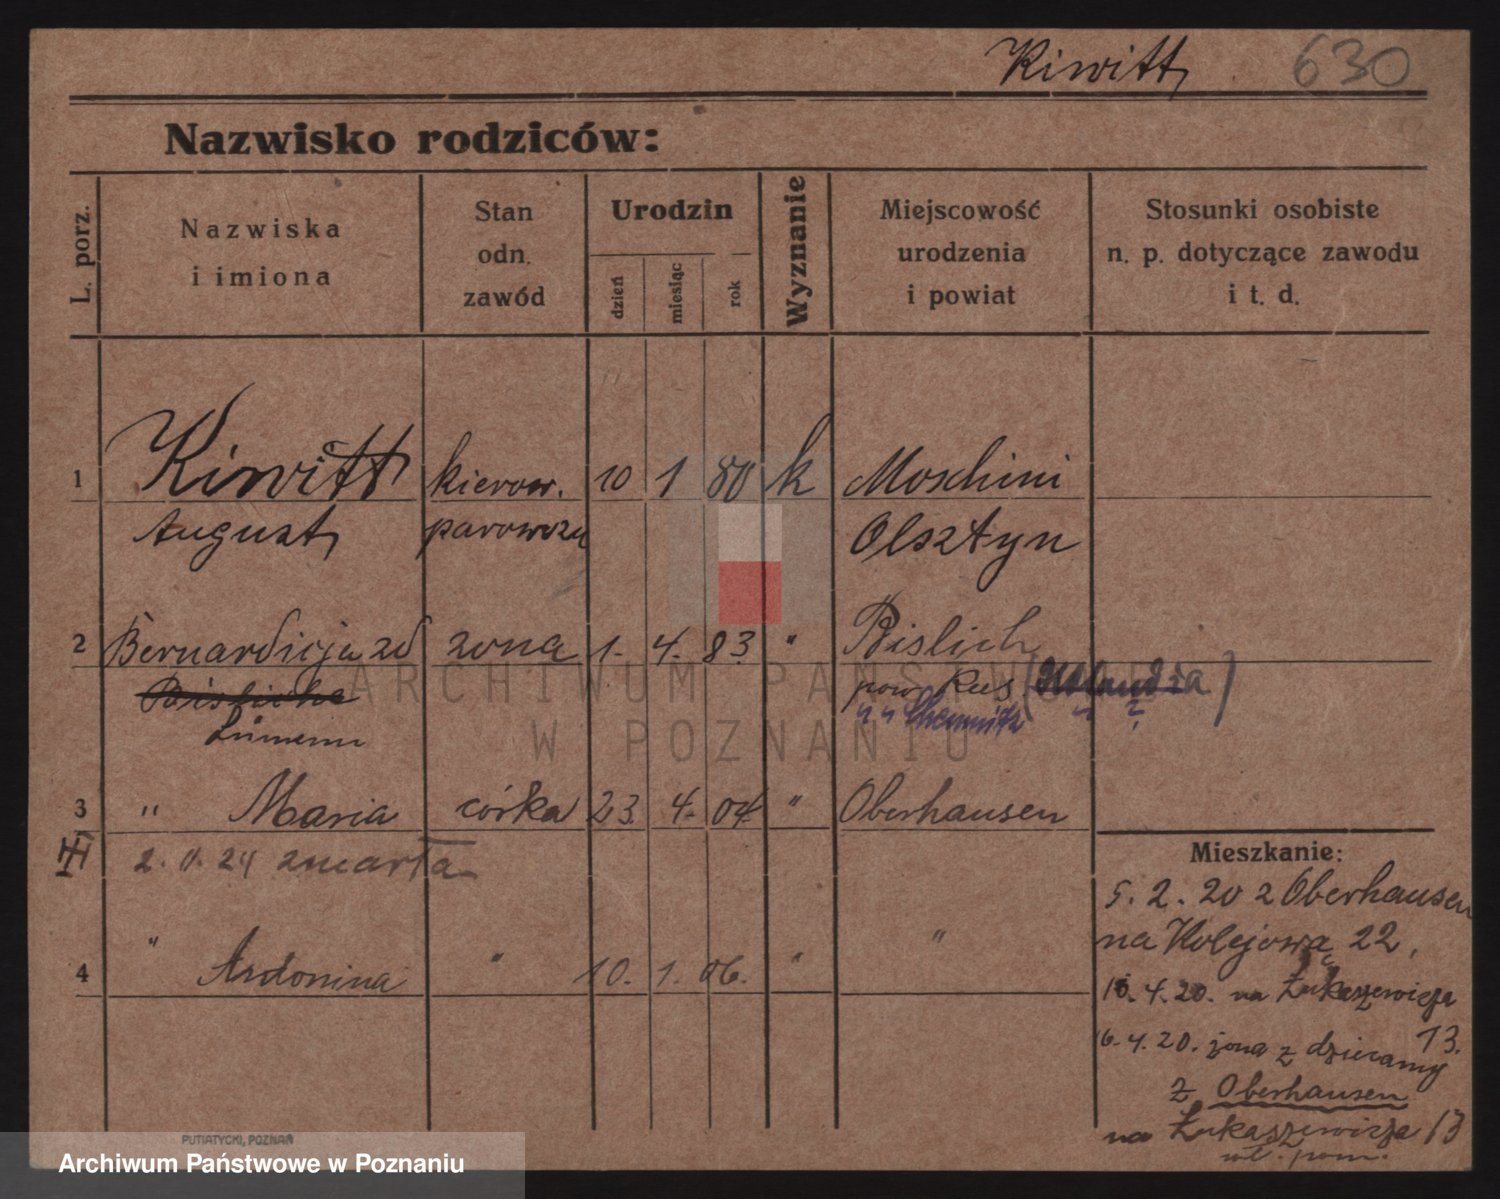 Kiwitt 630
Nazwisko rodziców:
L. porz.
Nazwiska
i imiona
Stan
odn.
zawód
Urodzin
dzień
miesiąc
rok
Wyznanie
Miejscowość
urodzenia
i powiat
Stosunki osobiste
n. p. dotyczące zawodu
i t. d.
1 Kiwitt kierow. 10 1 80 k Moschini
August parowozu Olsztyn
2 Bernardicja zd zona 1. 4. 83. " Bislich
pow. Rees (Holandia)
" " Chemnitz " ?
3 " Maria córka 23 4. 04. " Oberhausen
2. 11. 24 zmarła
4 " Antonina " 10. 1. 06. " "
Mieszkanie:
5. 2. 20 z Oberhausen
na Kolejowa 22,
16. 4. 20. na Łukaszewicza
13.
16. 4. 20. żona z dziecamy
z Oberhausen
na Łukaszewicza 13
PUTIATYCKI, POZNAŃ
ARCHIWUM PAŃSTWOWE
W POZNANIU
Archiwum Państwowe w Poznaniu